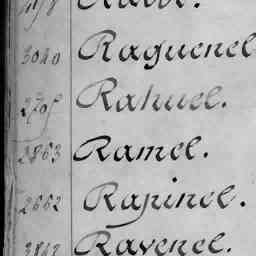 3040 Raguenel
2705 Rahuel.
2863 Ramel.
2662 Rapinel.
Ravenel.